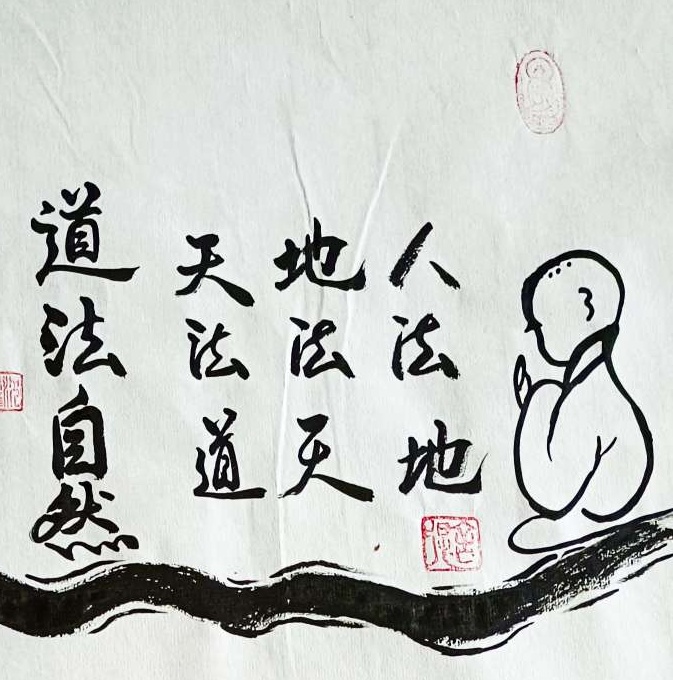 人法地
地法天
天法道
道法自然